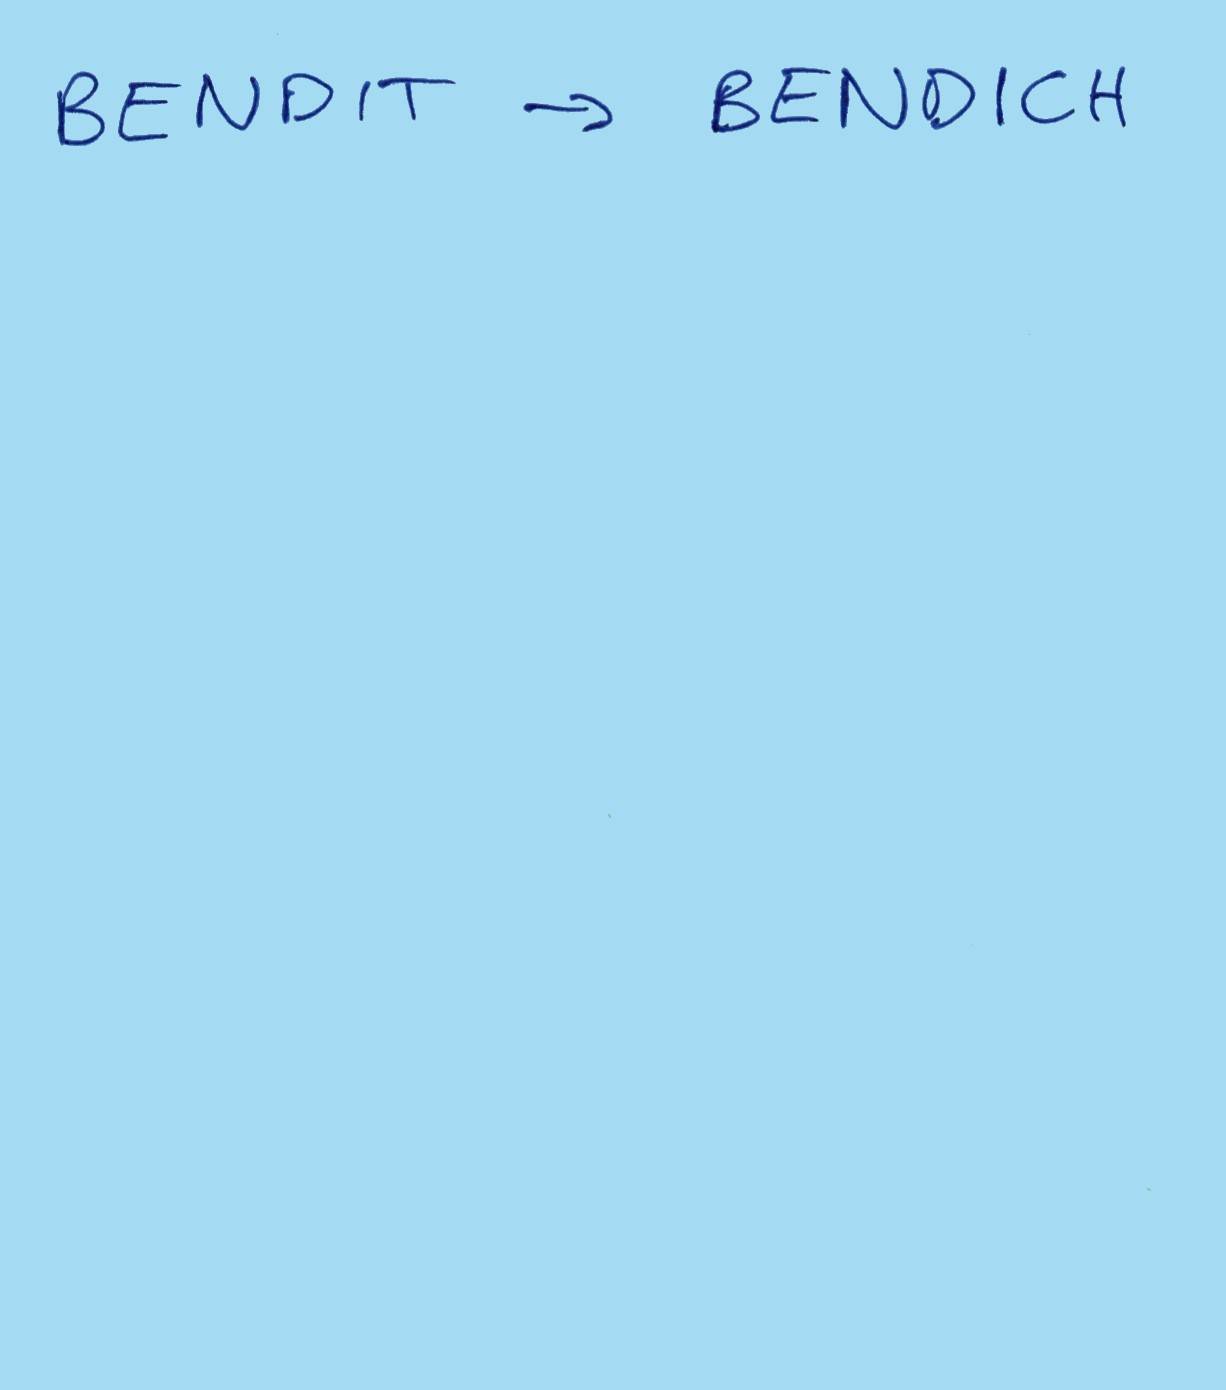 BENDIT → BENDICH